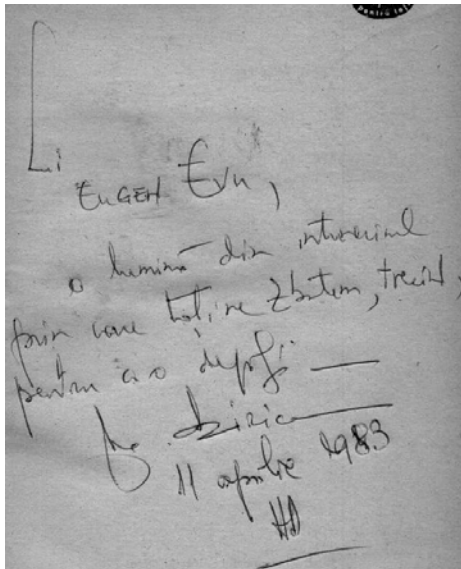 Lui
EUGEN Evu,
o lumină din întunericul
prin care toți, ne zbatem, trecînd,
pentru a o
11 aprilie 1983
HD